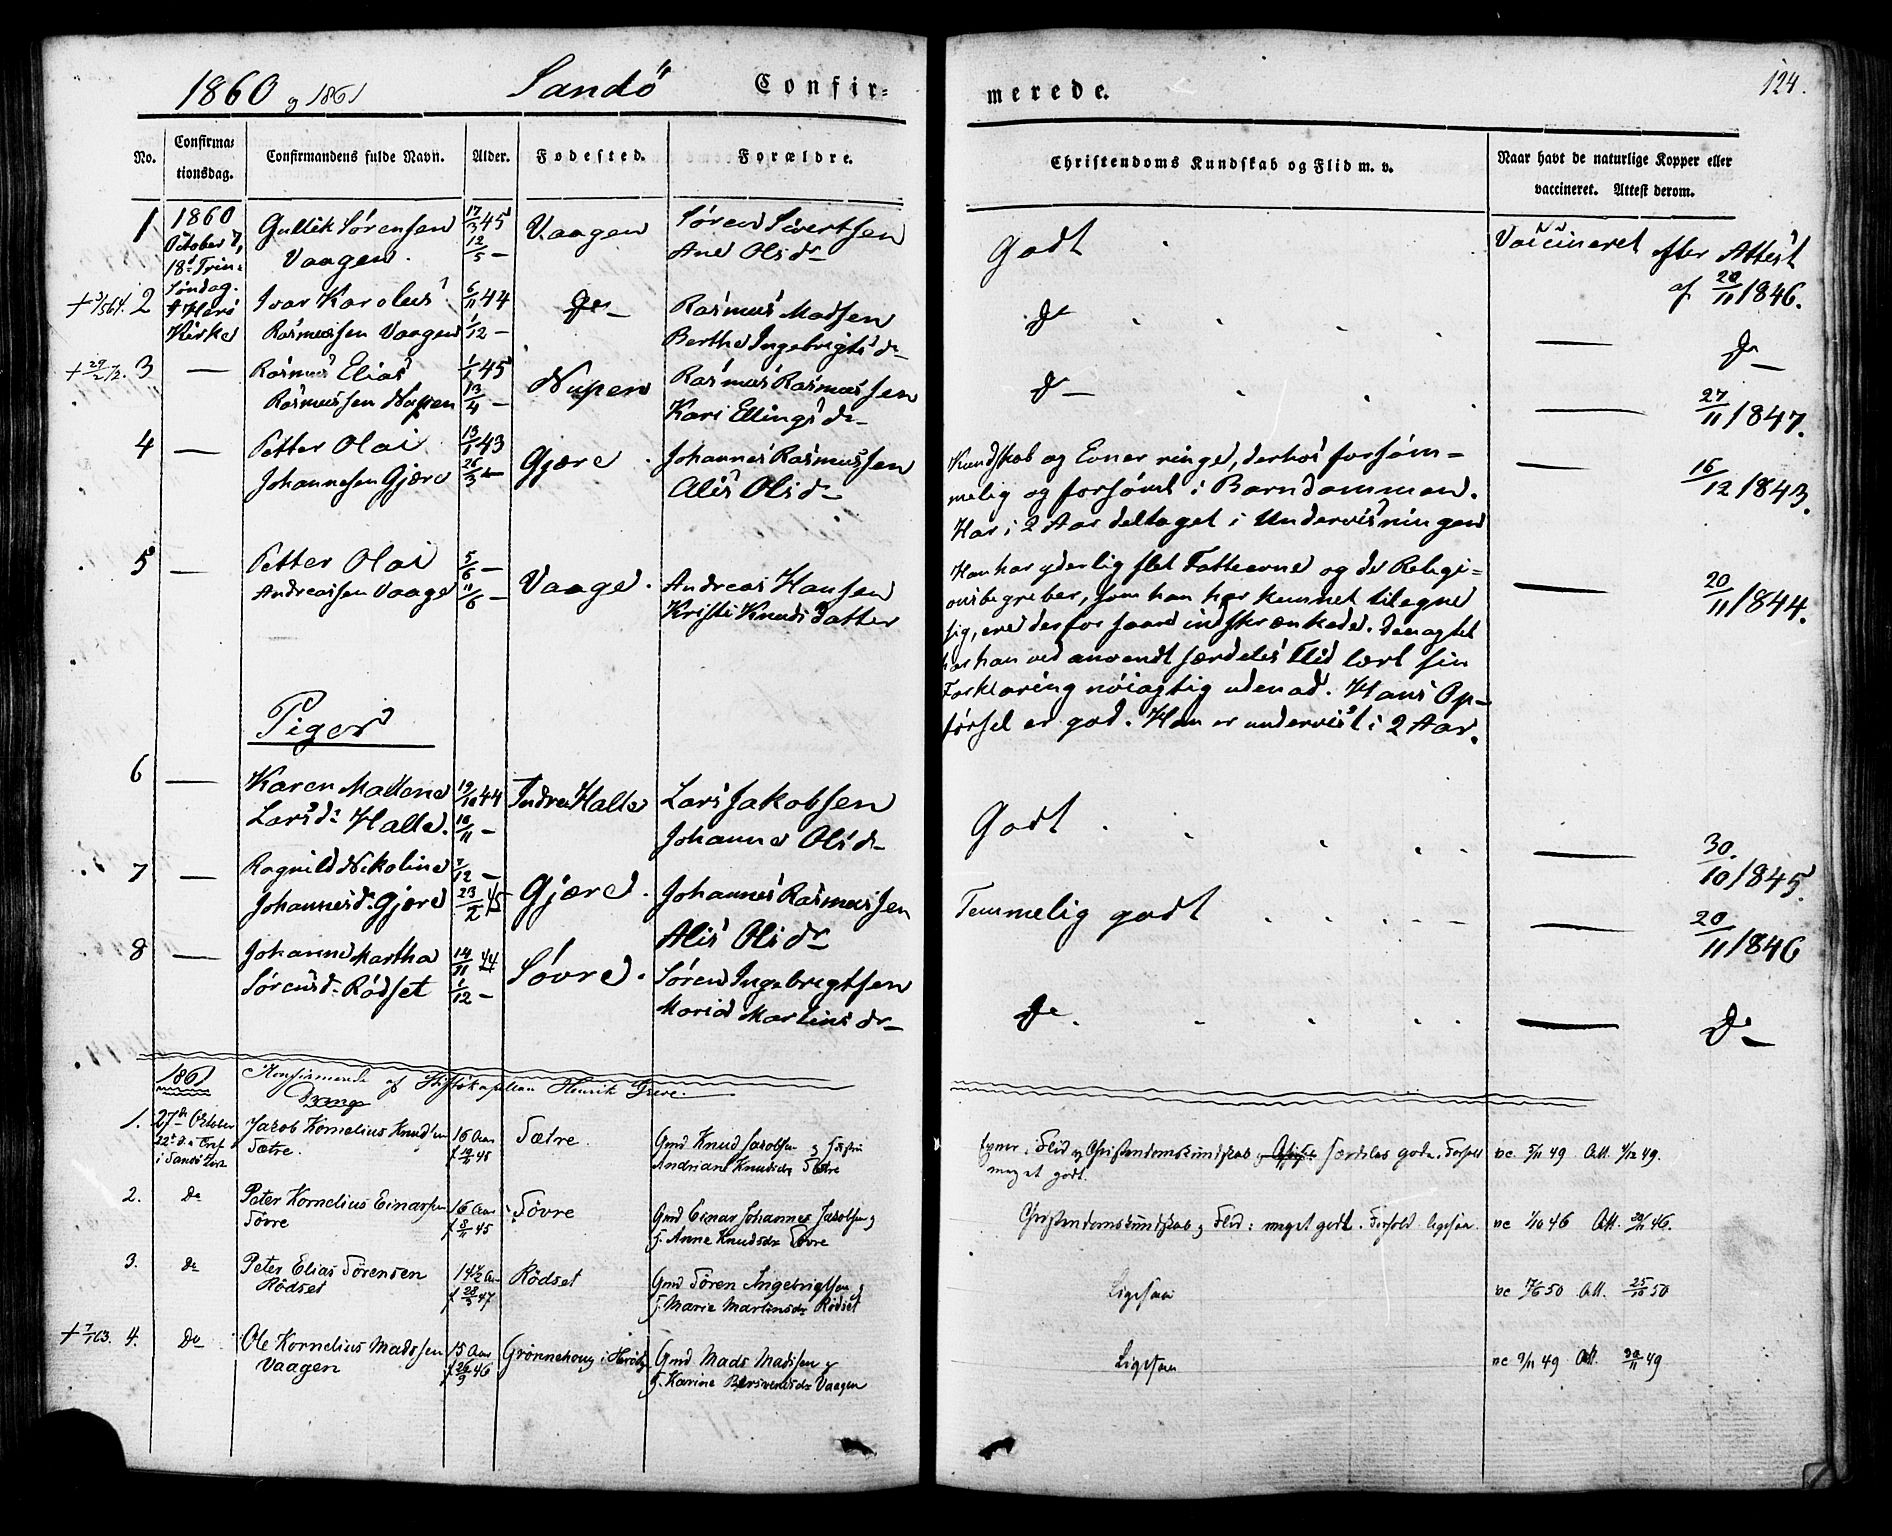 1860 og 1861 Sandö Confir=
merede. 124.
No. Confirma=tionsdag. Confirmandens fulde Navn. Alder. Fødested. Forældre.
Christendoms Kundskab og Flid m. v. Naar havt de naturlige Kopper eller vaccineret. Attest derom.
1 1860 Gullik Sörensen 17/3 45 Vaagen Sören Sivertsen
October 7, Vaagen. 12/5 - Ane Olsdr
18d Trin=
Godt Vaccineret efter Attest
af 20/11 1846.
Søndag.
2 Ivar Karolus 6/11 44 do Rasmus Madsen
Herö
Kirke Rasmussen Vaagen 1/12 - Berthe Ingebrigtsdr
do do
+ 29/2 72. 3 Rasmus Elias 1/1 45 Nupen Rasmus Rasmussen
Rasmussen Nupen 13/4 - Kari Ellingsdr
do 27/11 1847.
4 Petter Olai 13/1 43 Gjære Johannes Rasmussen
Johannesen Gjære 26/3 Alis Olsdr
Kundskab og Evner ringe, derhos forsöm=
melig og forsömt i Barndommen.
Har i 2 Aar deltaget i Undervisningen
16/12 1843.
5 Petter Olai 5/6 - Vaage. Andreas Hansen
Andreassen Vaage 11/6 - Kristi Knudsdatter
Han har yderlig slet Fatteevne og de Religi=
onsbegreber, som han har kunnet tilegne
sig, ere derfor saare indskrænkede. Desagtet
har han ved anvendt særdeles Flid lært sin
Forklaring nöiagtig udenad. Hans Op=
försel er god. Han er undervist i 2 Aar.
20/11 1844.
Piger
6 Karen Mallene 19/10 44 Indre Halle Lars Jakobsen
Larsdr Halle. 10/11 - Johanne Olsdr
Godt 30/10 1845.
7 Ragnild Nikoline 2/12 - Gjære. Johannes Rasmussen
Johannesdr Gjære 23/2 45 Alis Olsdr
Temmelig godt 20/11 1846
8 Johanne Martha 14/11 44 Sövre. Sören Ingebrigtsen
Sörensdr Rödset 1/12 - Marie Martinsdr
do. do
1861 Konfirmerede af Stiftskapellan Henrik Greve.
1. 27de October Jacob Kornelius Knudsen 16 Aar Sætre. Gmd Knud Jacobsen og Hustru
Sætre. f 45 Andriane Knudsdr Sætre
i Sandö
Evner, Flid og Christendomskundskab særdeles gode. Forhold
meget godt.
vc 5/11 49 Att. 4/12 49.
2. Do Peter Kornelius Einarsen 16 Aar Sövre Gmd Einar Johannes Jacobsen og
Sövre f 8/11 45 H. Anne Knudsdr Sövre
Christendomskundskab og Flid: meget godt. Forhold ligesaa. vc 1/10 46 Att. 20/11 46.
3. Do Peter Elias Sörensen 14 1/2 Aar Rödset Gmd Sören Ingebrigtsen og
Rödset f 28/3 47 H. Marie Martinsdr Rödset
Ligesaa vc 17/6 50 Att. 25/10 50
+ 7/1 63. 4. Do Ole Kornelius Madssen 15 Aar Grönnehoug i Herö Gmd Mads Madssen og
Vaagen f 26/3 46 H. Karine Vaagen
Ligesaa vc 9/11 49 Att. 30/11 49